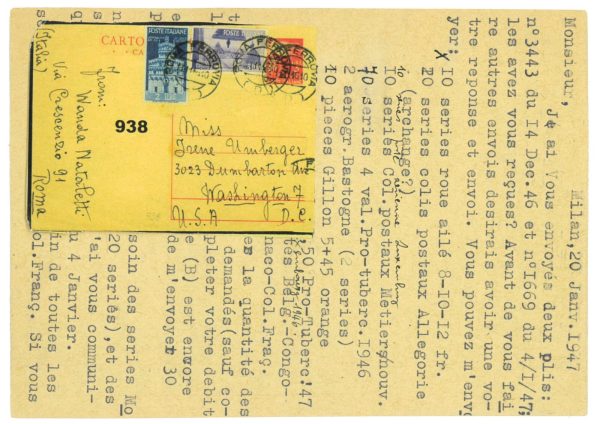 Milan,20 Janv.I947
Monsieur,
Je ai Vous envoyés deux plis:
n°3443 du I4 Dec.46 et n°I669 du 4/I/47,
les avez vous reçues? Avant de vous fai
re autres envois desirais avoir une vo-
tre reponse et envoi. Vous pouvez m'envo
yer:
X I0 series roue ailé 8-I0-I2 fr.
20 series colis postaux Allegorie
(archange?)
10 series aerienne Luxemburg
10 series Col.postaux Metiers nouv.
70 series 4 val.Pro-tuberc.I946
2 aerogr.Bastogne (2 series)
10 pieces Gillon 5+45 orange
,50 Pro Tuberc.'47
des Belg.-Congo-
naco-Col.Fraç.
er la quantité des
demandés(sauf co-
pleter votre debit
e (B) est encore
de m'envoyer 30
soin des series Mo
20 series),et des
'ai vous communi-
u 4 Janvier.
in de toutes les
ol.Franç. Si vous
CARTO
FERROVIA
938
from:
Wanda Nataletti
Via Crescenzio 91
Roma
(Italia)
Miss
Irene Umberger
3023 Dumbarton Av
Washington 7
D.C.
U.S.A